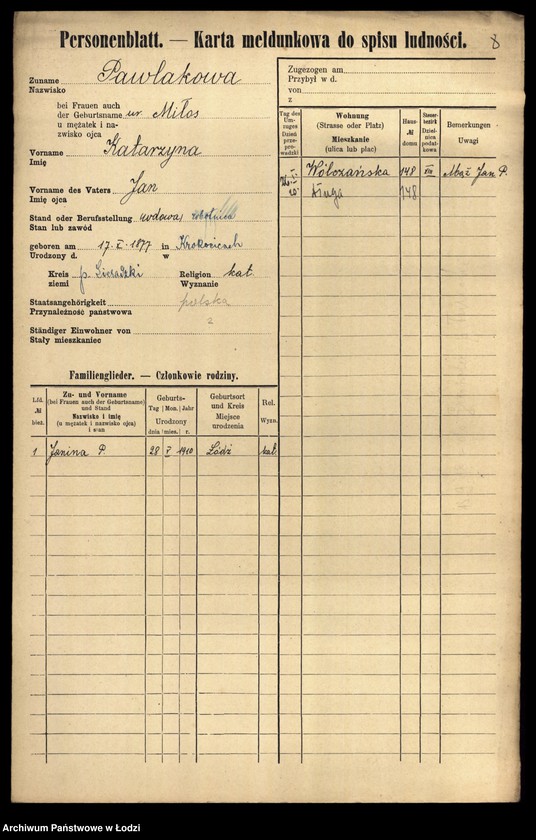 Personenblatt. — Karta meldunkowa do spisu ludności.
8
Zuname Pawlakowa
Nazwisko
bei Frauen auch
der Geburtsname ur. Miłos
u mężatek i na-
zwisko ojca
Vorname Katarzyna
Imię
Vorname des Vaters Jan
Imię ojca
Stand oder Berufsstellung wdowa
Stan lub zawód
geboren am 17.X.1877 in Krokocicach
Urodzony d. w
Kreis p. Sieradzki Religion kat.
ziemi Wyznanie
Staatsangehörigkeit polska
Przynależność państwowa
Ständiger Einwohner von
Stały mieszkaniec
Zugezogen am
Przybył w d.
von
z
Tag des Um-zuges Dzień prze-prowadzki
Wohnung (Strasse oder Platz) Mieszkanie (ulica lub plac)
Haus- № domu
Steuer-bezirk Dziel-nica podat-kowa
Bemerkungen Uwagi
Wólczańska 148 VIII Mąż Jan P.
Długa 148
Familienglieder. — Członkowie rodziny.
Lfd. № bież.
Zu- und Vorname (bei Frauen auch der Geburtsname) und Stand Nazwisko i imię (u mężatek i nazwisko ojca) i stan
Geburts- Tag | Mon. | Jahr Urodzony dnia | mies. | r.
Geburtsort und Kreis Miejsce urodzenia
Rel. Wyzn.
1 Janina P. 28 V 1910 Łódź kat.
Archiwum Państwowe w Łodzi